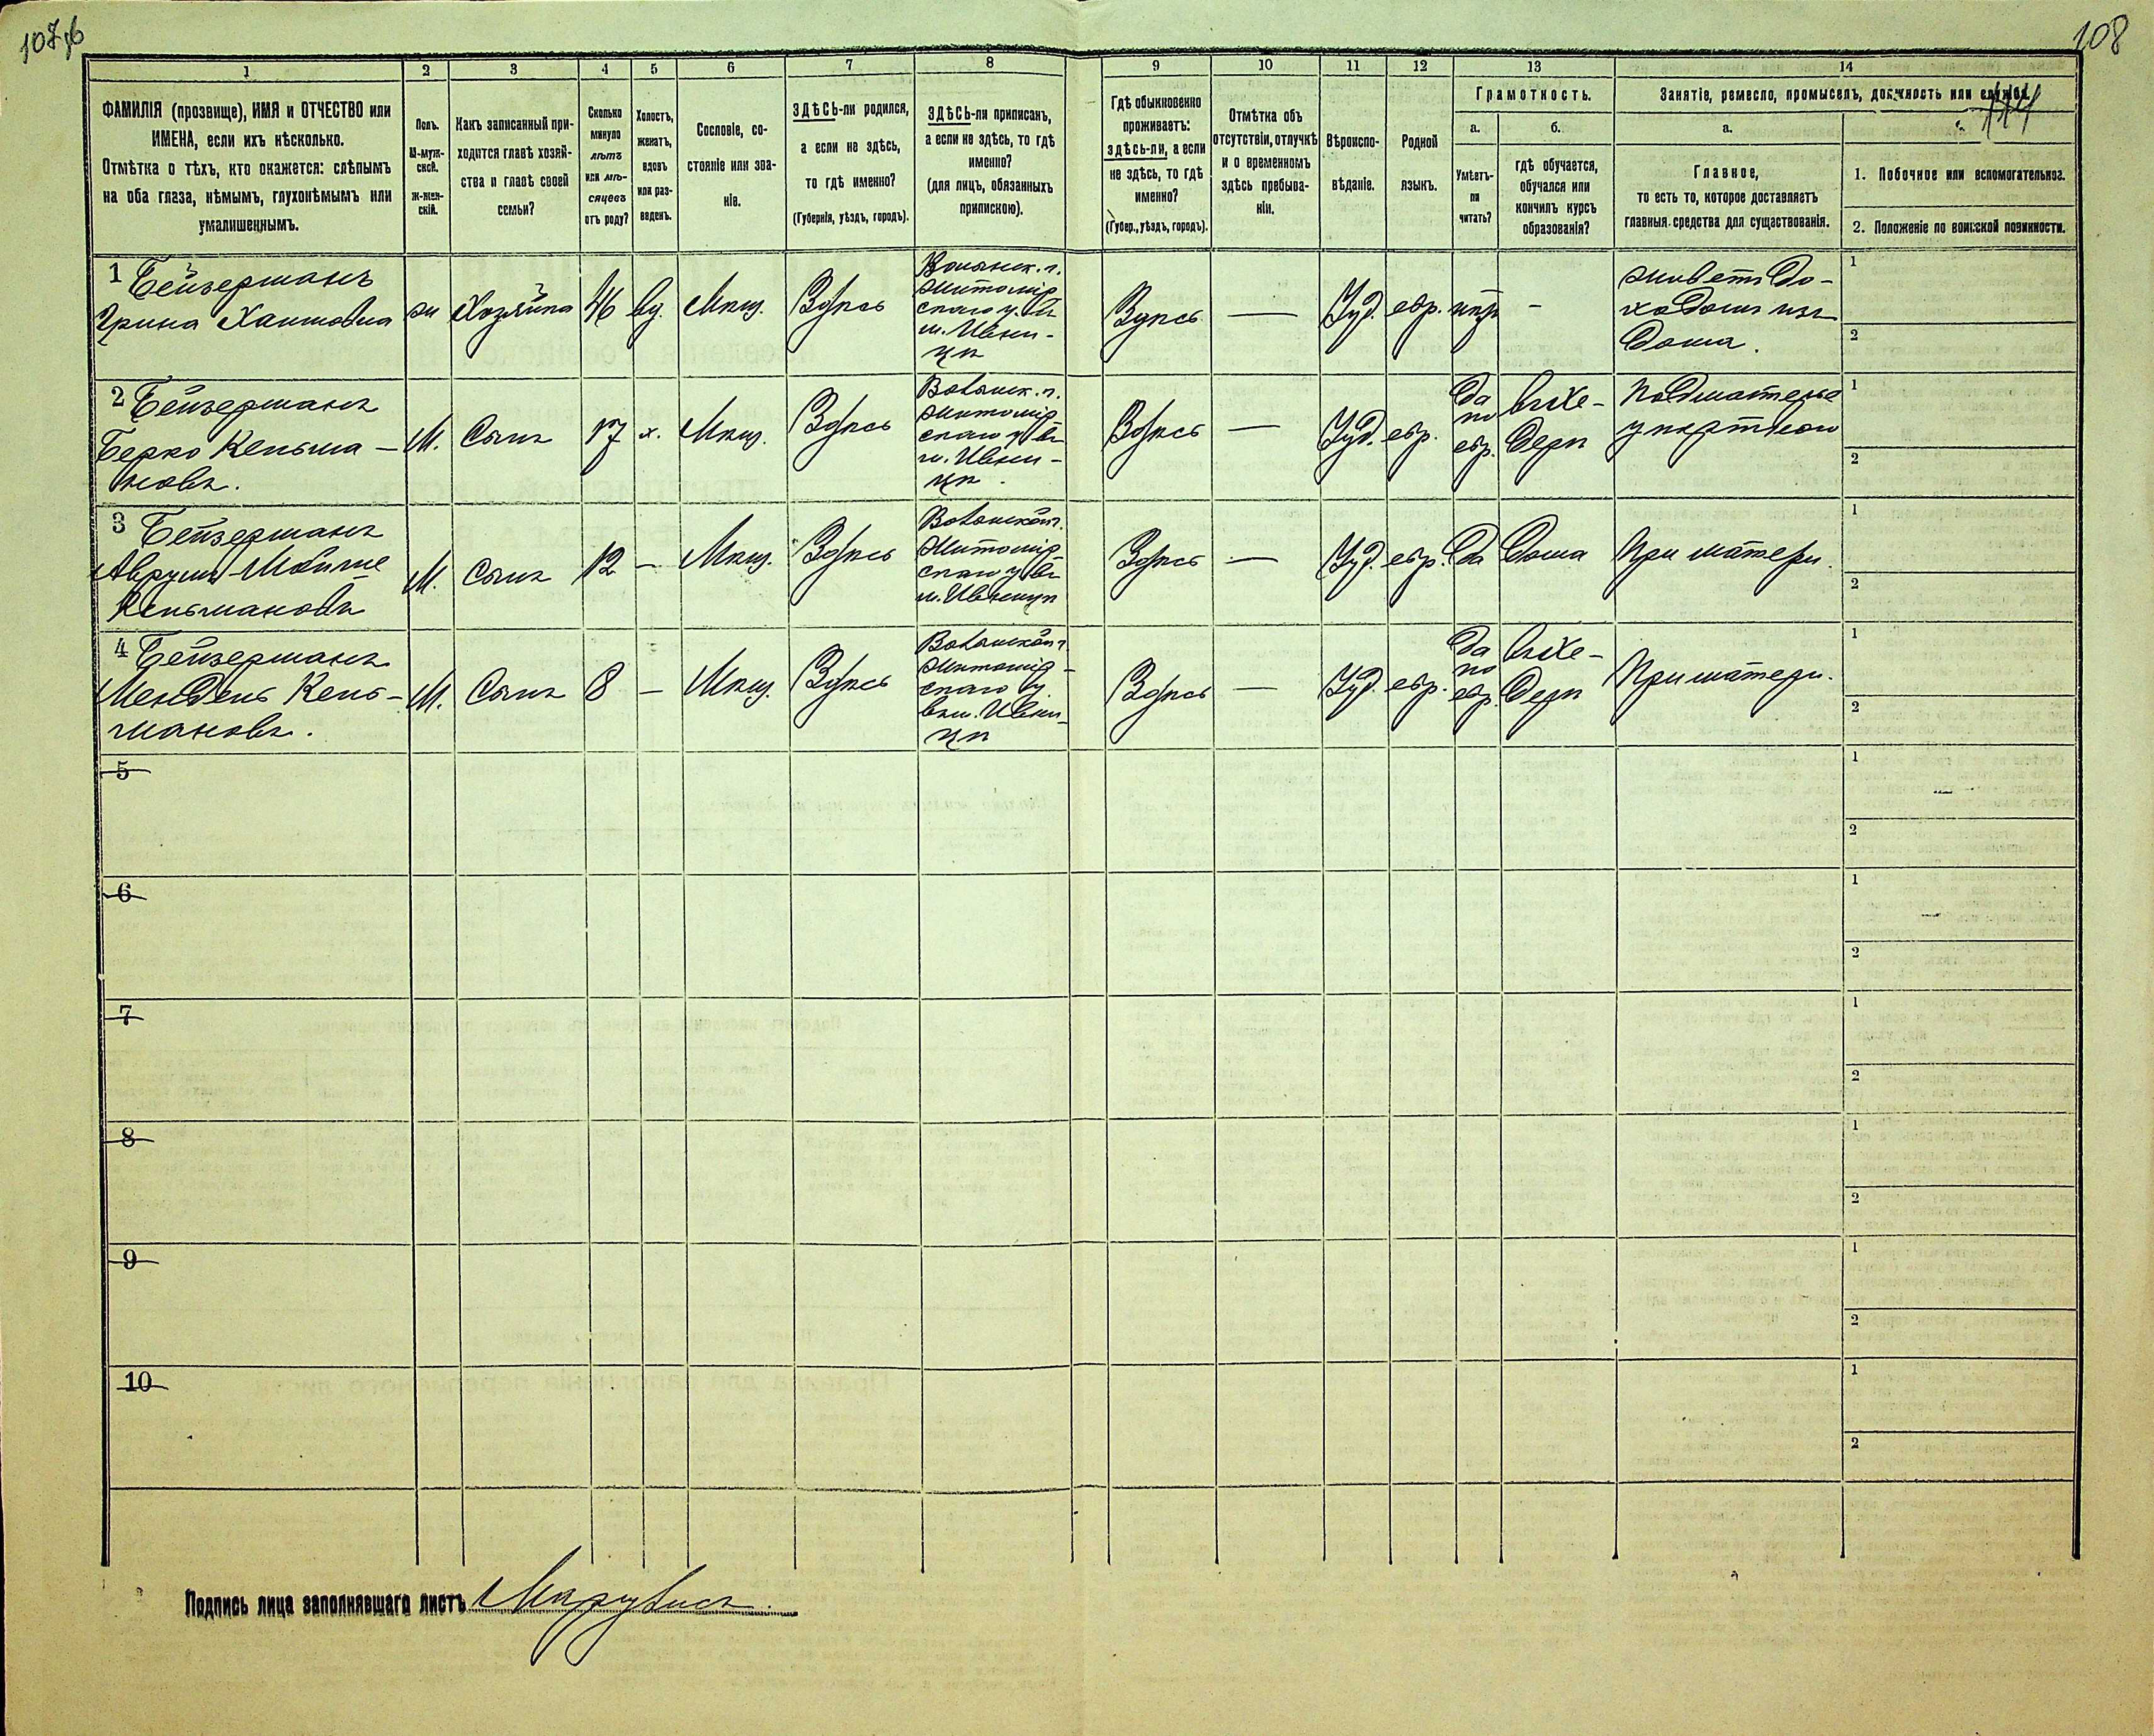 108
1 2 3 4 5 6 7 8 9 10 11 12 13 14
ФАМИЛІЯ (прозвище), ИМЯ и ОТЧЕСТВО или
ИМЕНА, если ихъ нѣсколько.
Отмѣтка о тѣхъ, кто окажется: слѣпымъ
на оба глаза, нѣмымъ, глухонѣмымъ или
умалишеннымъ.
Полъ.
М-муж-
ской.
Ж-жен-
скій.
Какъ записанный при-
ходится главѣ хозяй-
ства и главѣ своей
семьи?
Сколько
минуло
лѣтъ
или мѣ-
сяцевъ
отъ роду?
Холостъ,
женатъ,
вдовъ
или раз-
веденъ.
Сословіе, со-
стояніе или зва-
ніе.
ЗДѢСЬ-ли родился,
а если не здѣсь,
то гдѣ именно?
(Губернія, уѣздъ, городъ).
ЗДѢСЬ-ли приписанъ,
а если не здѣсь, то гдѣ
именно?
(для лицъ, обязанныхъ
припискою).
Гдѣ обыкновенно
проживаетъ:
здѣсь-ли, а если
не здѣсь, то гдѣ
именно?
(Губер., уѣздъ, городъ).
Отмѣтка объ
отсутствіи, отлучкѣ
и о временномъ
здѣсь пребыва-
ніи.
Вѣроиспо-
вѣданіе.
Родной
языкъ.
Грамотность.
а.
Умѣетъ-
ли
читать?
б.
гдѣ обучается,
обучался или
кончилъ курсъ
образованія?
Занятіе, ремесло, промыселъ, должность или служба.
а.
Главное,
то есть то, которое доставляетъ
главныя средства для существованія.
1. Побочное или вспомогательное.
2. Положеніе по воинской повинности.
1 Бейзерманъ
Хаимовна
ж
Хозяйка
46
вд.
Мѣщ.
Здѣсь
Волынск. г.
Житомір
скаго у. въ
м. Ивни-
цѣ
Здѣсь
—
Іуд.
евр.
нѣтъ
-
живетъ до-
ходомъ изъ
дома.
1
2
2 Бейзерманъ
Берко Кельма-
новъ.
М.
Сынъ
17
х.
Мѣщ.
Здѣсь
Волынск. г.
Житомір
скаго у. въ
м. Ивни-
цѣ
Здѣсь
—
Іуд.
евр.
да
по
евр.
въ хе-
дерѣ
1
2
3 Бейзерманъ
Кельмановъ
М.
Сынъ
12
—
Мѣщ.
Здѣсь
Волынской г.
Житомір-
скаго у. въ
м. Ивницѣ
Здѣсь
—
Іуд.
евр.
да
дома
При матери.
1
2
4 Бейзерманъ
Мендель Кель-
мановъ.
М.
Сынъ
8
—
Мѣщ.
Здѣсь
Волынской г.
Житомір-
скаго у.
въ м. Ивни-
цѣ
Здѣсь
—
Іуд.
евр.
да
по
евр.
въ хе-
дерѣ
При матери.
1
2
5
1
2
6
1
2
7
1
2
8
1
2
9
1
2
10
1
2
Подпись лица заполнявшаго листъ